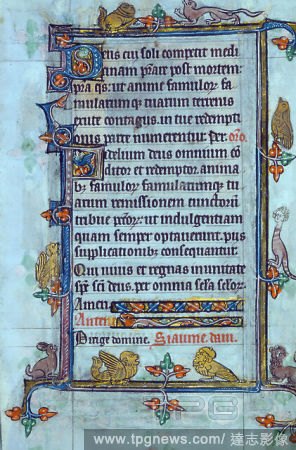 Deus cui soli competit medi
cinam prestare post mortem
pra qs ut anime famulor fa
mulatum qz tuarum terrenis
exute contagiis in tue redempti
onis parte numerentur Per oro
Fidelium deus omnium co
ditor et redemptor anima
b famulor famularumqz tu
arum remissionem cunctor
tribue ut indulgentiam
quam semper optauerunt piis
supplicationibz consequantur
Qui uiuis et regnas in unitate
sci deus per omnia
Amen
Anten
Dirige domine
TPG
www.tpgnews.com / 達志影像